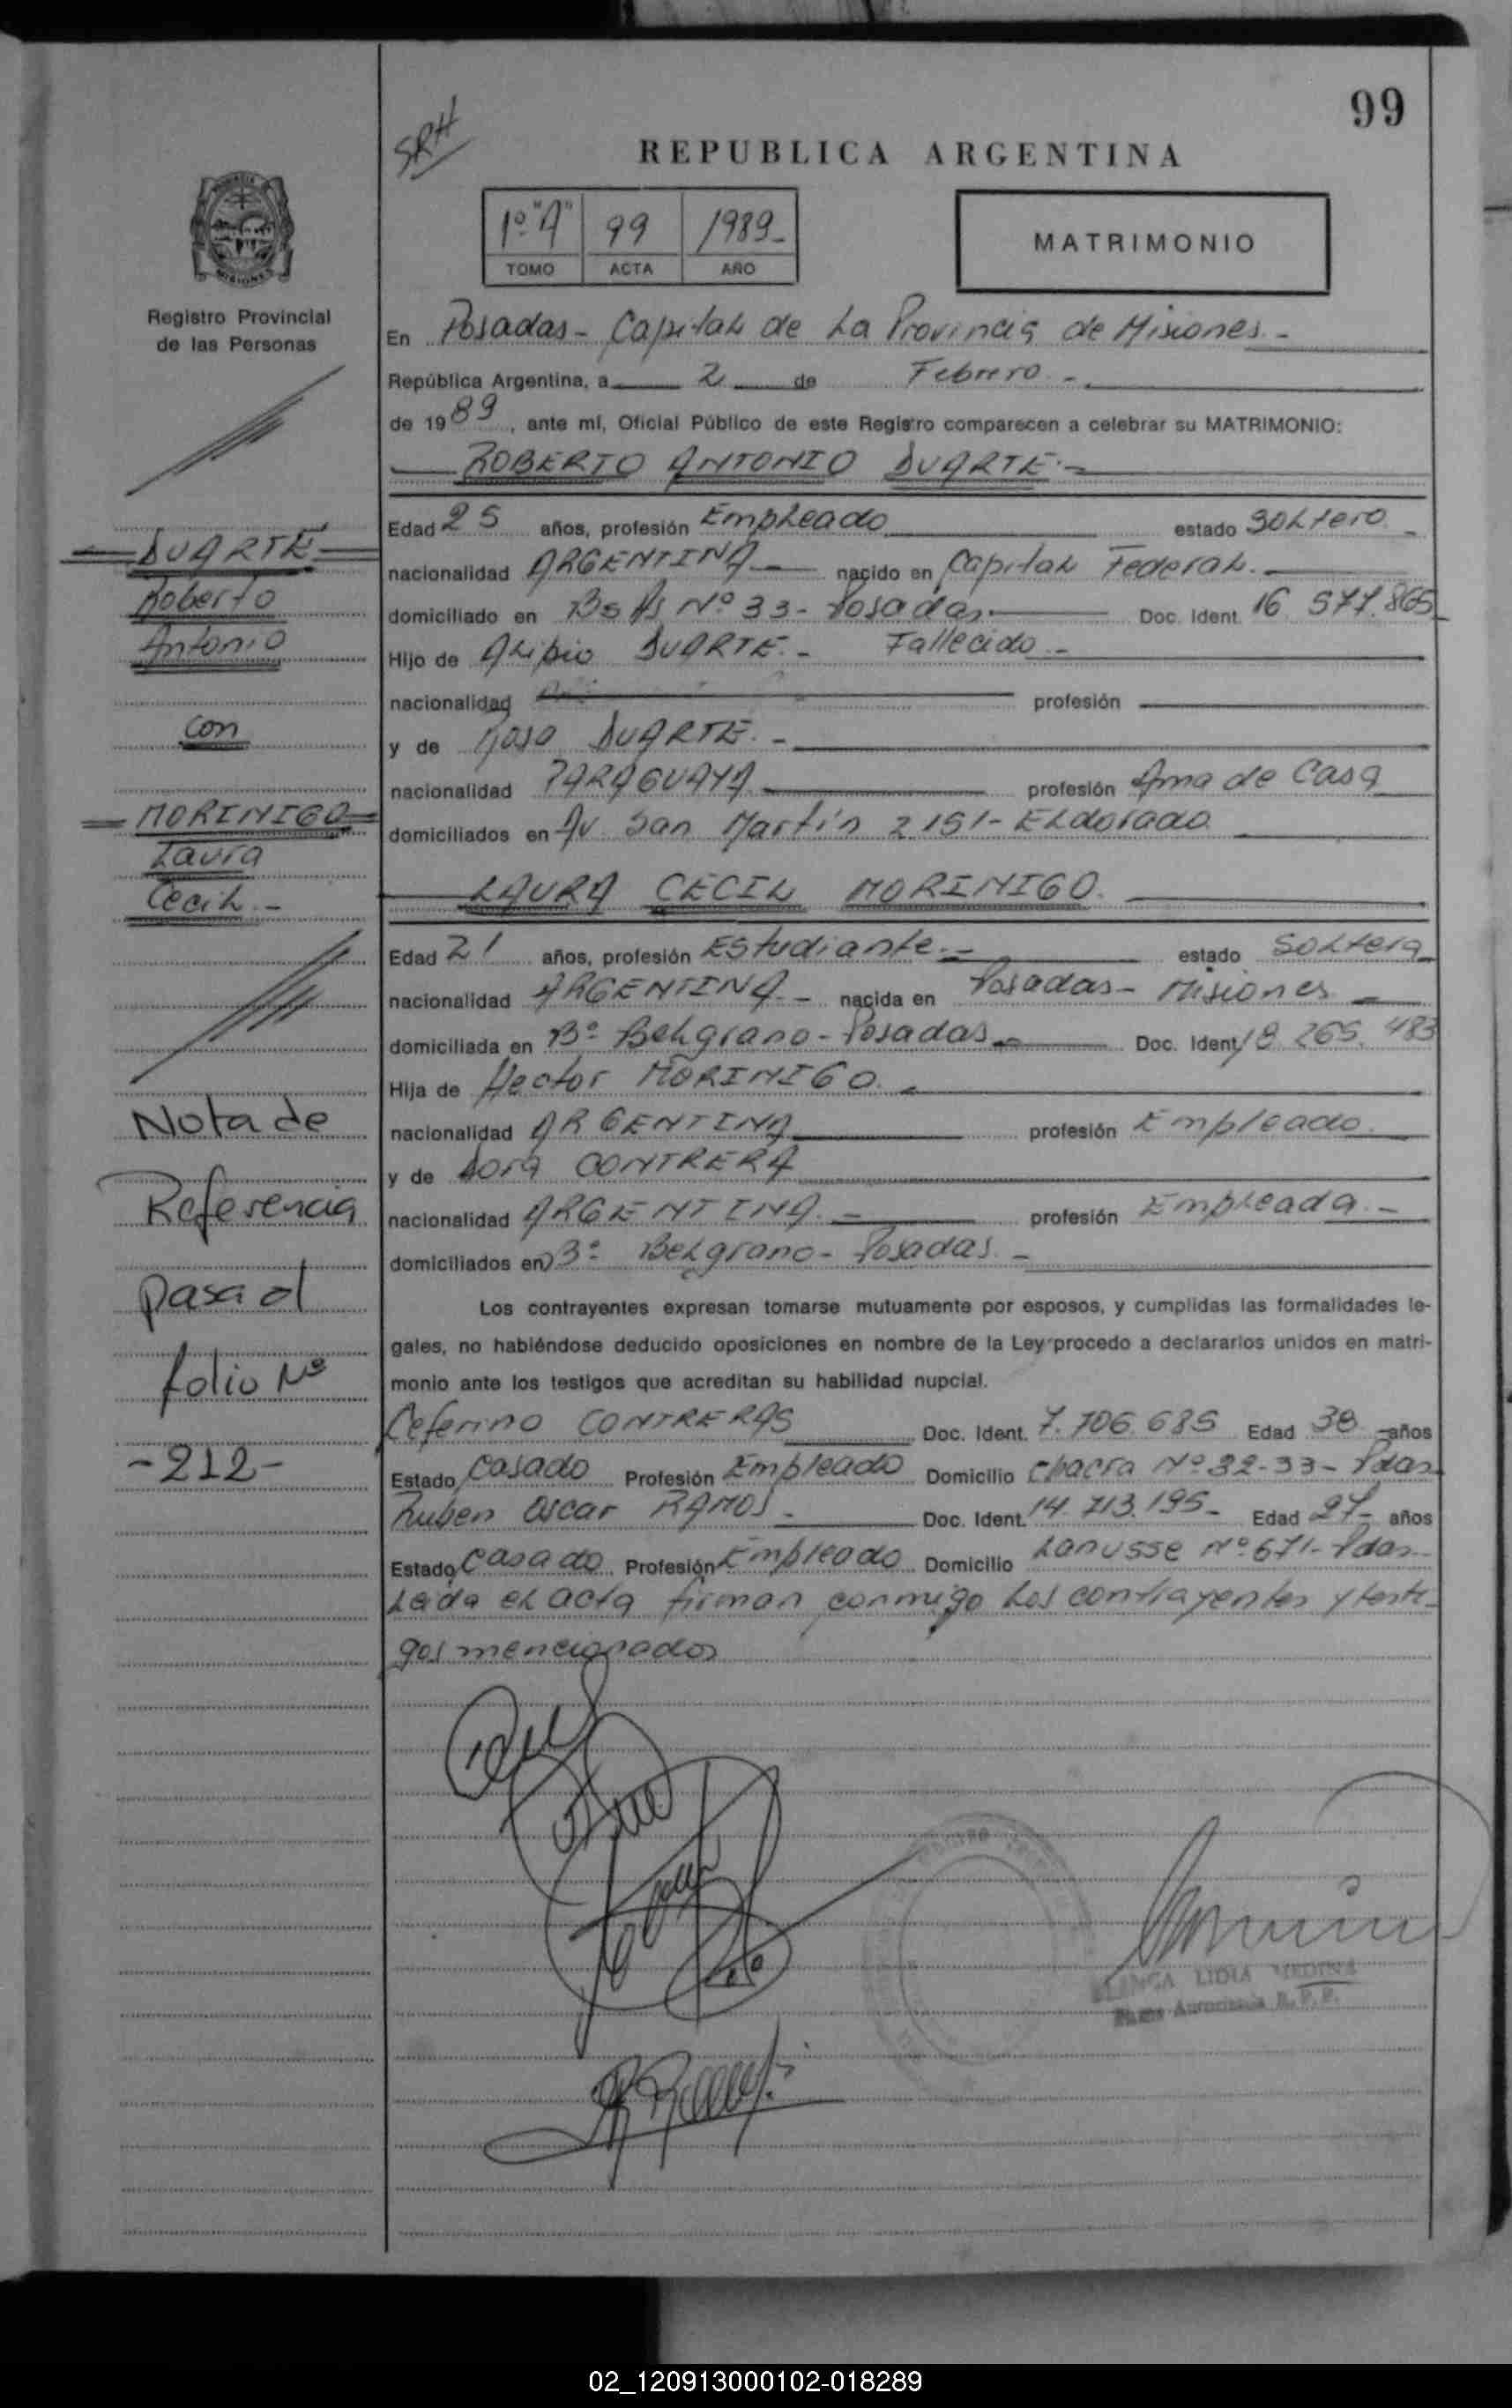 99
SRH
REPUBLICA ARGENTINA
1º "A" 99 1989-
TOMO ACTA AÑO
MATRIMONIO
MISIONES
Registro Provincial
de las Personas
En Posadas - Capital de La Provincia de Misiones.-
República Argentina, a 2 de Febrero.-
de 1989, ante mí, Oficial Público de este Registro comparecen a celebrar su MATRIMONIO:
ROBERTO ANTONIO DUARTE.-
Edad 25 años, profesión Empleado estado Soltero
nacionalidad ARGENTINA nacido en Capital Federal.
domiciliado en Bs As Nº 33- Posadas. Doc. Ident. 16.577.865
Hijo de Alipio DUARTE.- Fallecido.-
nacionalidad profesión
y de Rosa DUARTE.-
nacionalidad PARAGUAYA profesión Ama de Casa
domiciliados en Av. San Martín 2151- Eldorado
LAURA CECIL MORINIGO.
Edad 21 años, profesión Estudiante.- estado Soltera
nacionalidad ARGENTINA.- nacida en Posadas- Misiones
domiciliada en Bº Belgrano- Posadas Doc. Ident. 18.265.483
Hija de Hector MORINIGO.
nacionalidad ARGENTINA profesión Empleado.
y de Dora CONTRERA
nacionalidad ARGENTINA.- profesión Empleada.-
domiciliados en Bº Belgrano- Posadas.-
Los contrayentes expresan tomarse mutuamente por esposos, y cumplidas las formalidades le-
gales, no habiéndose deducido oposiciones en nombre de la Ley procedo a declararlos unidos en matri-
monio ante los testigos que acreditan su habilidad nupcial.
Ceferino CONTRERAS Doc. Ident. 7.706.685 Edad 38 años
Estado Casado Profesión Empleado Domicilio Chacra Nº 32-33- Pdas
Ruben Oscar RAMOS.- Doc. Ident. 14.713.195- Edad 27- años
Estado Casado Profesión Empleado Domicilio Lanusse Nº 671- Pdas-
Leida el acta firman conmigo los contrayentes y testi-
gos mencionados
DUARTE
Roberto
Antonio
con
MORINIGO
Laura
Cecil.-
Nota de
Referencia
pasa al
folio Nº
-212-
BLANCA LIDIA MEDINA
Autorizada R. P. P.
02_120913000102-018289